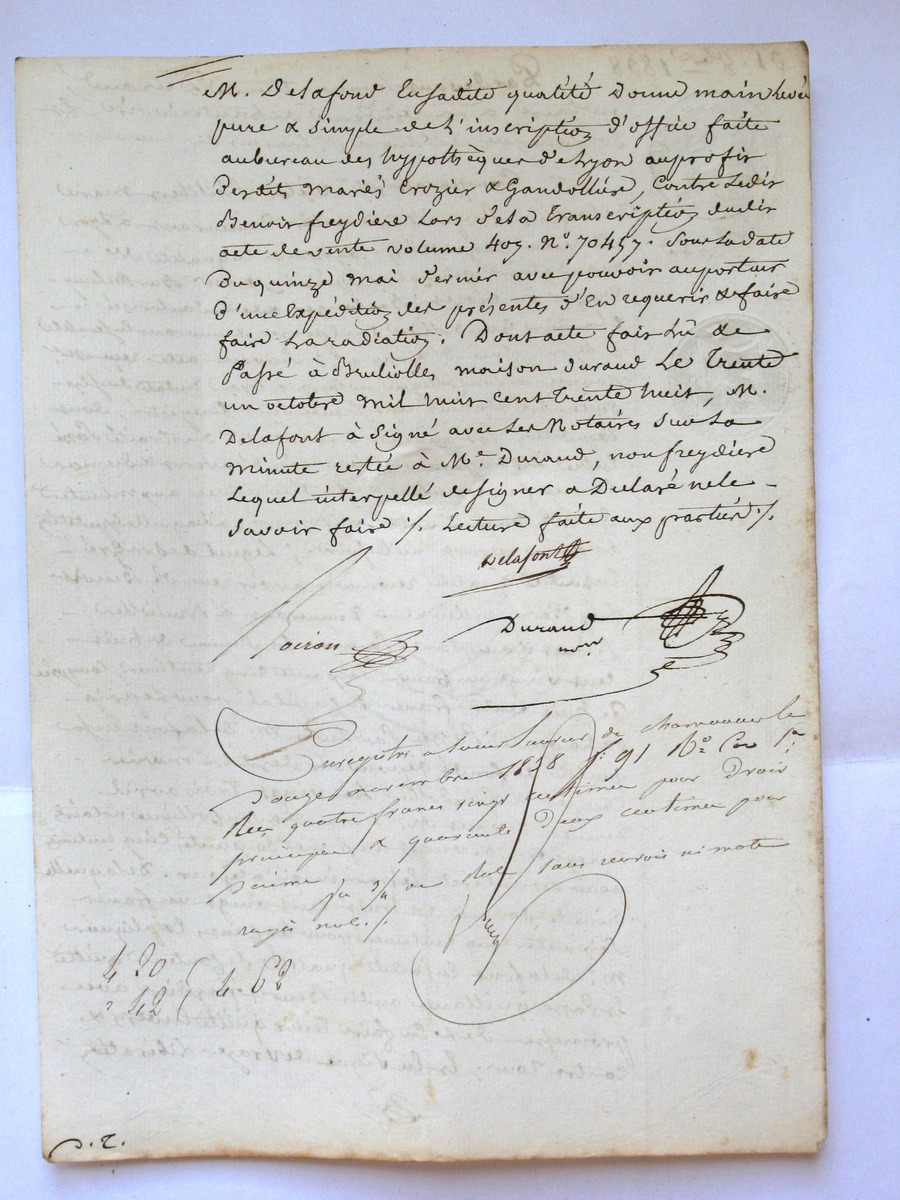 M. Delafond Ensadite qualité Donne main Levée
pure & simple de L'inscription d'office faite
aubureau des hypothèques de Lyon auprofit
Desdits mariés Crozier & Gandollière, Contre Ledit
Benoit freydière Lors de La Transcription dudit
acte de vente volume 409. N.º 70457. Sous La date
Du quinze mai dernier avec pouvoir auporteur
D'une Expédition des présentes d'En requerir & faire
faire La radiation. Dont acte fait Lû &
Passé à Brullioles maison durand Le Trente
un octobre mil huit cent Trente huit, M.
Delafont à Signé avec Les Notaires Sur La
minute restée à M.e Durand, non freydière
Lequel interpellé de signer a Declaré ne le -
Savoir faire ./. Lecture faite aux parties ./.
Delafont
Durand
Voiron
not.
Enregistré a Saint Laurent de chamousset le
Douze novembre 1838 f.º 91 R.º C.es 1.re
Reçu quatre francs vingt centimes pour Droit
principal & quarante deux centimes pour
Decime
de Role sans renvois ni mots
rayés nuls ./.
4 20 ( 4 62
" 42 (